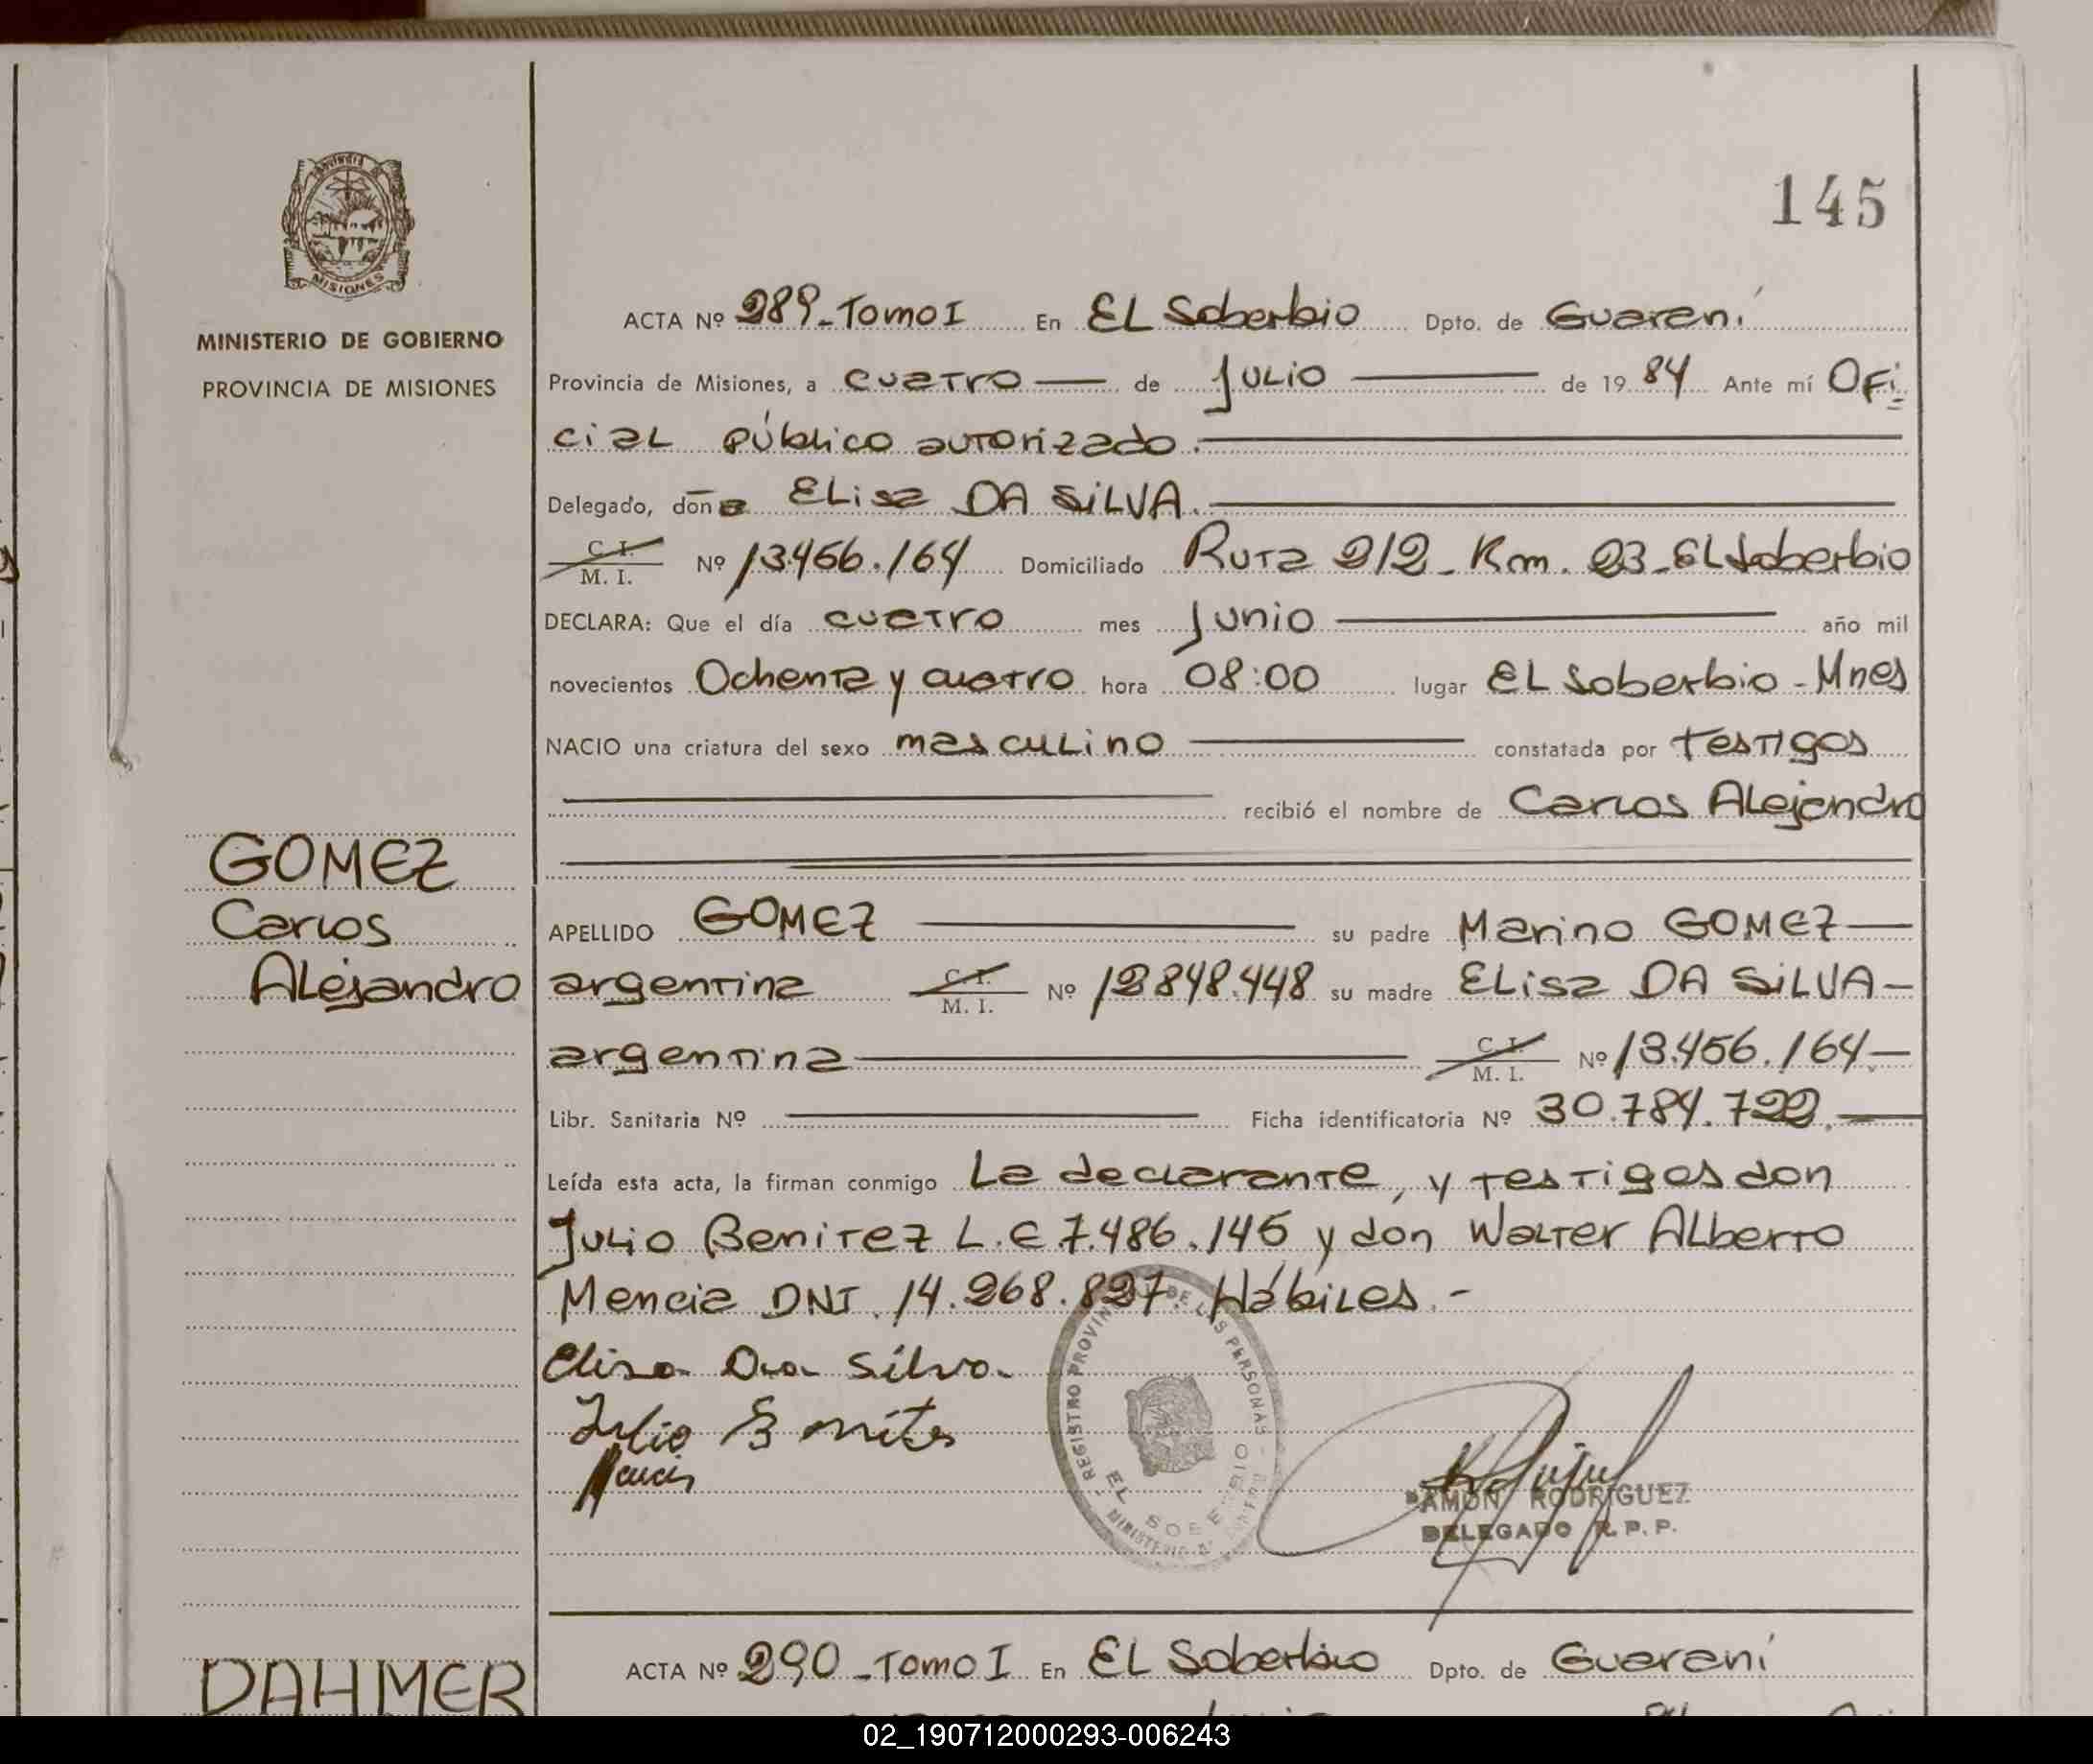 145
MISIONES
MINISTERIO DE GOBIERNO
PROVINCIA DE MISIONES
ACTA Nº 289 - Tomo I En EL Soberbio Dpto. de Guaraní
Provincia de Misiones, a cuatro de Julio de 1984 Ante mí Ofi
cial público autorizado.
Delegado, doña Elisa DA SILVA.
C. I. / M. I. Nº 13.456.164 Domiciliado Ruta 212 - Km. 23 - El Soberbio
DECLARA: Que el día cuatro mes Junio año mil
novecientos Ochenta y cuatro hora 08:00 lugar EL Soberbio - Mnes
NACIO una criatura del sexo masculino constatada por testigos
recibió el nombre de Carlos Alejandro
GOMEZ
Carlos
Alejandro
APELLIDO GOMEZ su padre Marino GOMEZ
argentina C. I. / M. I. Nº 12848.448 su madre Elisa DA SILVA -
argentina C. I. / M. I. Nº 13.456.164 -
Libr. Sanitaria Nº Ficha identificatoria Nº 30.784.722. -
Leída esta acta, la firman conmigo La declarante, y testigos don
Julio Benitez L.E 7.486.145 y don Walter Alberto
Mencia DNI. 14.268.827. Hábiles. -
Elisa Da Silva.
REGISTRO PROVINCIAL DE LAS PERSONAS
EL SOBERBIO
RAMON RODRIGUEZ
DELEGADO R. P. P.
ACTA Nº 290 - Tomo I En EL Soberbio Dpto. de Guaraní
DAHMER
02_190712000293-006243